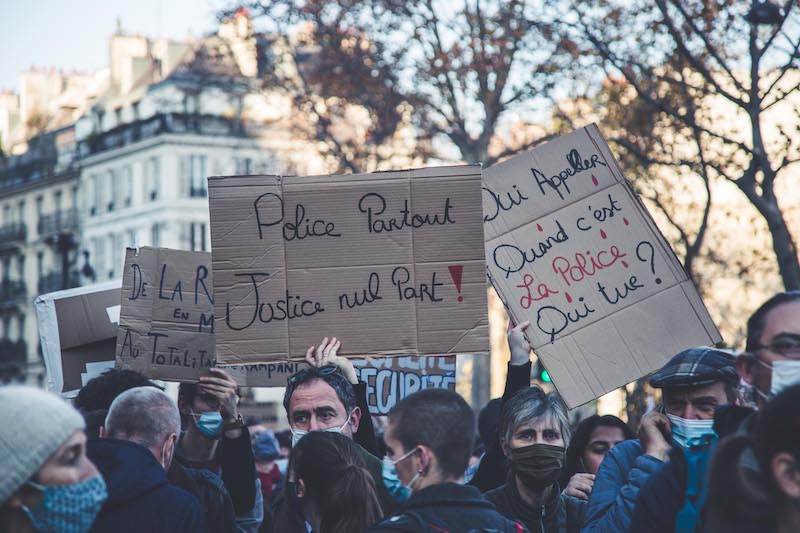 Police Partout
Justice nul Part !
Qui Appeller
Quand c'est
La Police
Qui tue ?
De La R
en M
Au Totalita
rampant
SECURITÉ